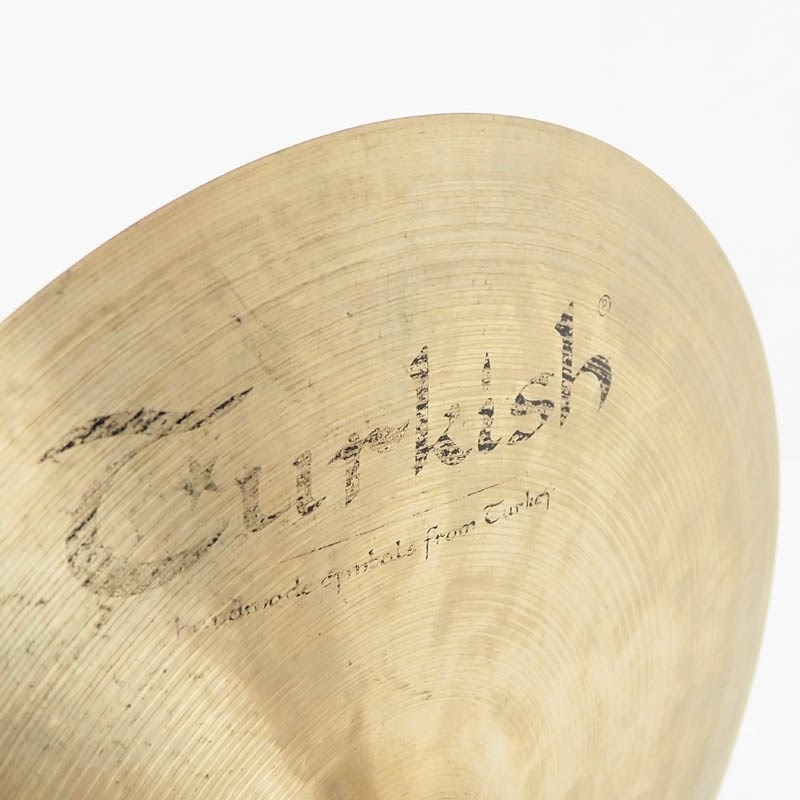 Turkish®
handmade cymbals from Turkey